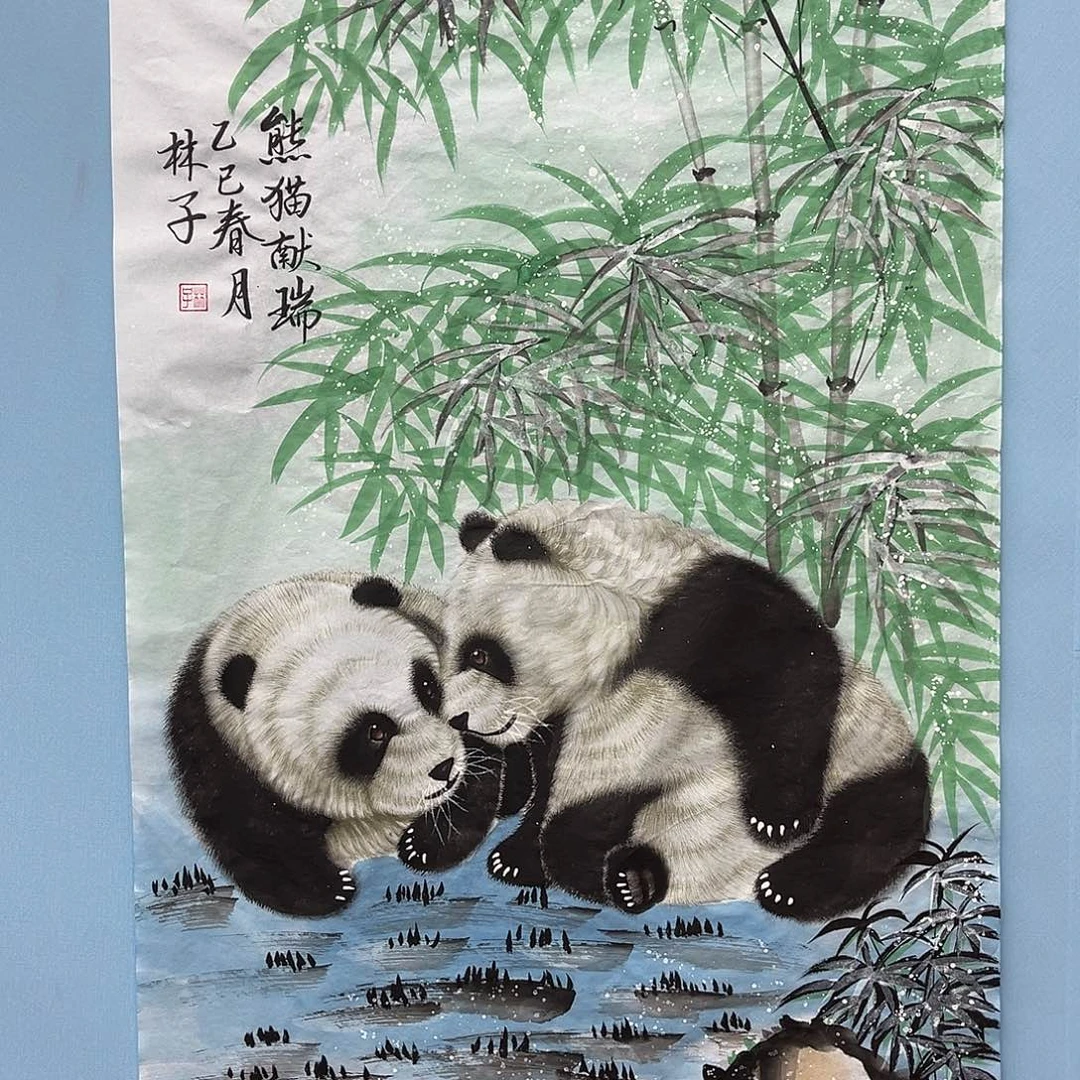 熊猫献瑞
乙巳春月
林子